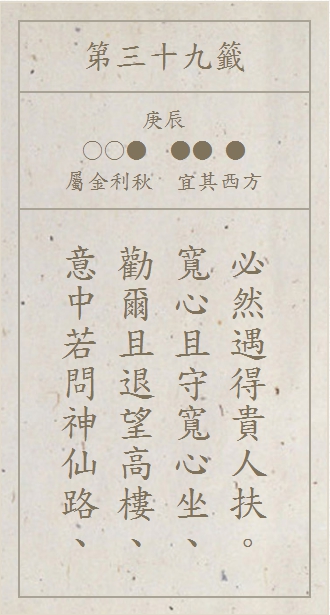 第三十九籤
庚辰
○○● ●● ●
屬金利秋 宜其西方
意中若問神仙路、
勸爾且退望高樓、
寬心且守寬心坐、
必然遇得貴人扶。